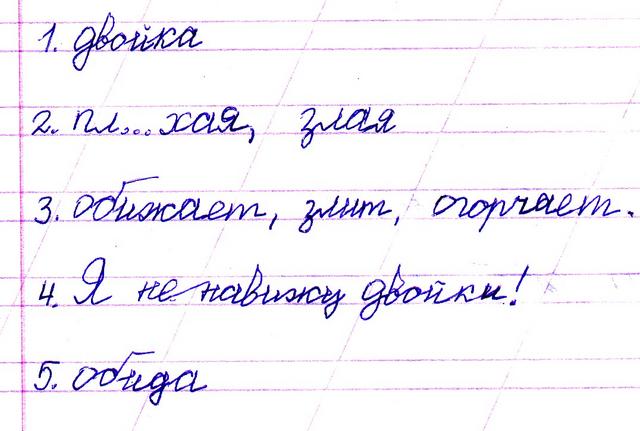 1. двойка
2. пл...хая, злая
3. обижает, злит, огорчает.
4. Я ненавижу двойки!
5. обида